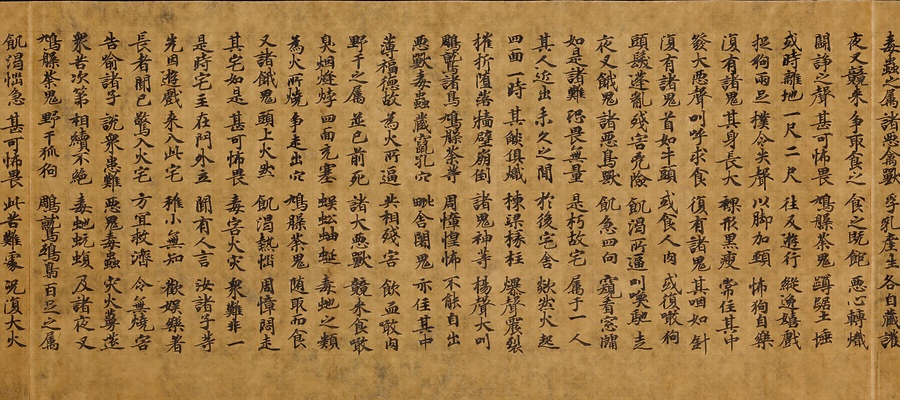 毒蟲之屬 諸惡禽獸 孚乳產生 各自藏護
夜叉競來 爭取食之 食之既飽 惡心轉熾
鬪諍之聲 甚可怖畏 鳩槃荼鬼 蹲踞土埵
或時離地 一尺二尺 往反遊行 縱逸嬉戲
捉狗兩足 撲令失聲 以脚加頸 怖狗自樂
復有諸鬼 其身長大 裸形黑瘦 常住其中
發大惡聲 叫呼求食 復有諸鬼 其咽如針
復有諸鬼 首如牛頭 或食人肉 或復噉狗
頭髮蓬亂 殘害兇險 飢渴所逼 叫喚馳走
夜叉餓鬼 諸惡鳥獸 飢急四向 窺看窓牖
如是諸難 恐畏無量 是朽故宅 屬于一人
其人近出 未久之間 於後宅舍 欻然火起
四面一時 其餤俱熾 棟梁椽柱 爆聲震裂
摧折墮落 墻壁崩倒 諸鬼神等 揚聲大叫
鵰鷲諸鳥 鳩槃荼等 周慞惶怖 不能自出
惡獸毒蟲 藏竄孔穴 毗舍闍鬼 亦住其中
薄福德故 為火所逼 共相殘害 飲血噉肉
野干之屬 並已前死 諸大惡獸 競來食噉
臭烟熢㶿 四面充塞 蜈蚣蚰蜒 毒蛇之類
為火所燒 爭走出穴 鳩槃荼鬼 隨取而食
又諸餓鬼 頭上火然 飢渴熱惱 周慞悶走
其宅如是 甚可怖畏 毒害火災 衆難非一
是時宅主 在門外立 聞有人言 汝諸子等
先因遊戲 來入此宅 稚小無知 歡娛樂著
長者聞已 驚入火宅 方宜救濟 令無燒害
告喻諸子 說衆患難 惡鬼毒蟲 災火蔓莚
衆苦次第 相續不絕 毒蛇蚖蝮 及諸夜叉
鳩槃荼鬼 野干狐狗 鵰鷲鵄梟 百足之屬
飢渴惱急 甚可怖畏 此苦難處 況復大火